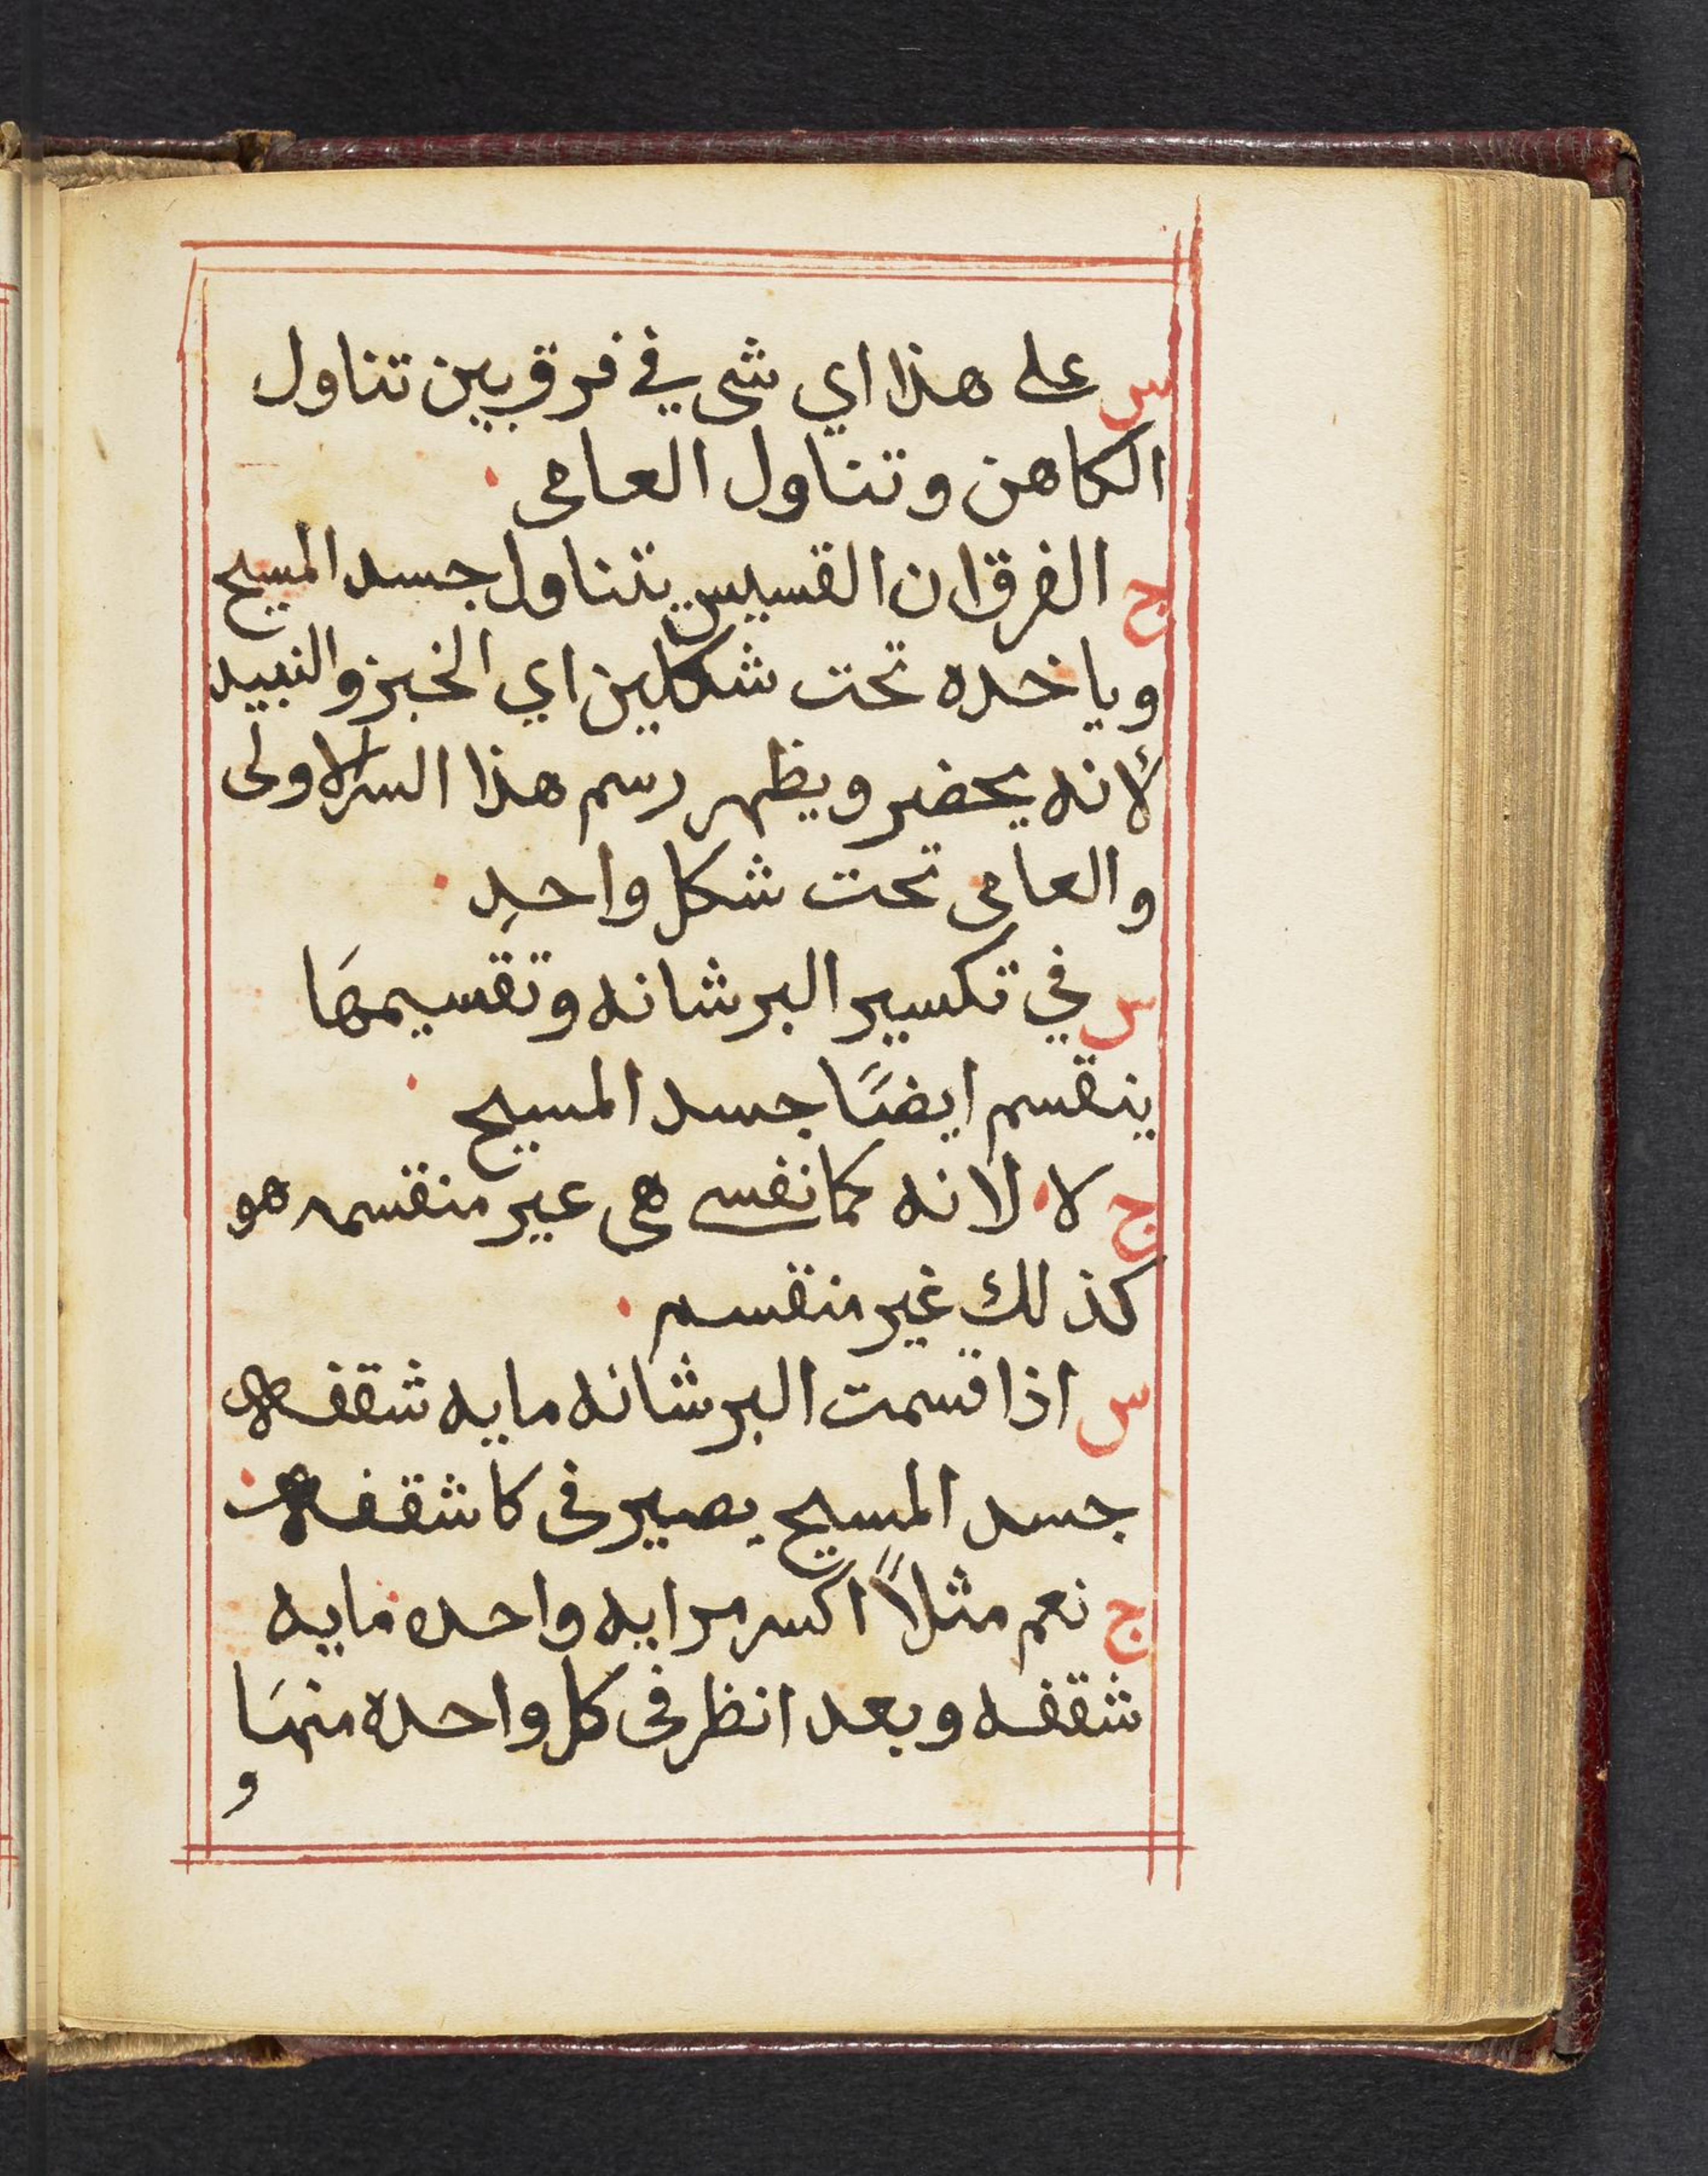 س على هذا اي شى في فرق بين تناول
الكاهن وتناول العامى
ج الفرق ان القسيس يتناول جسد المسيح
وياخده تحت شكلين اي الخبز والنبيد
لانه يحضر ويظهر رسم هذا السر الاولى
والعامى تحت شكل واحد
س في تكسير البرشانه وتقسيمها
ينقسم ايضًا جسد المسيح
ج لا لانه كما نفسى هى عير منقسمه هو
كذلك غير منقسم
س اذا قسمت البرشانه مايه شقفه
جسد المسيح يصير فى كل شقفه
ج نعم مثلاً اكسر مرايه واحده مايه
شقفه وبعد انظر فى كل واحده منها
و